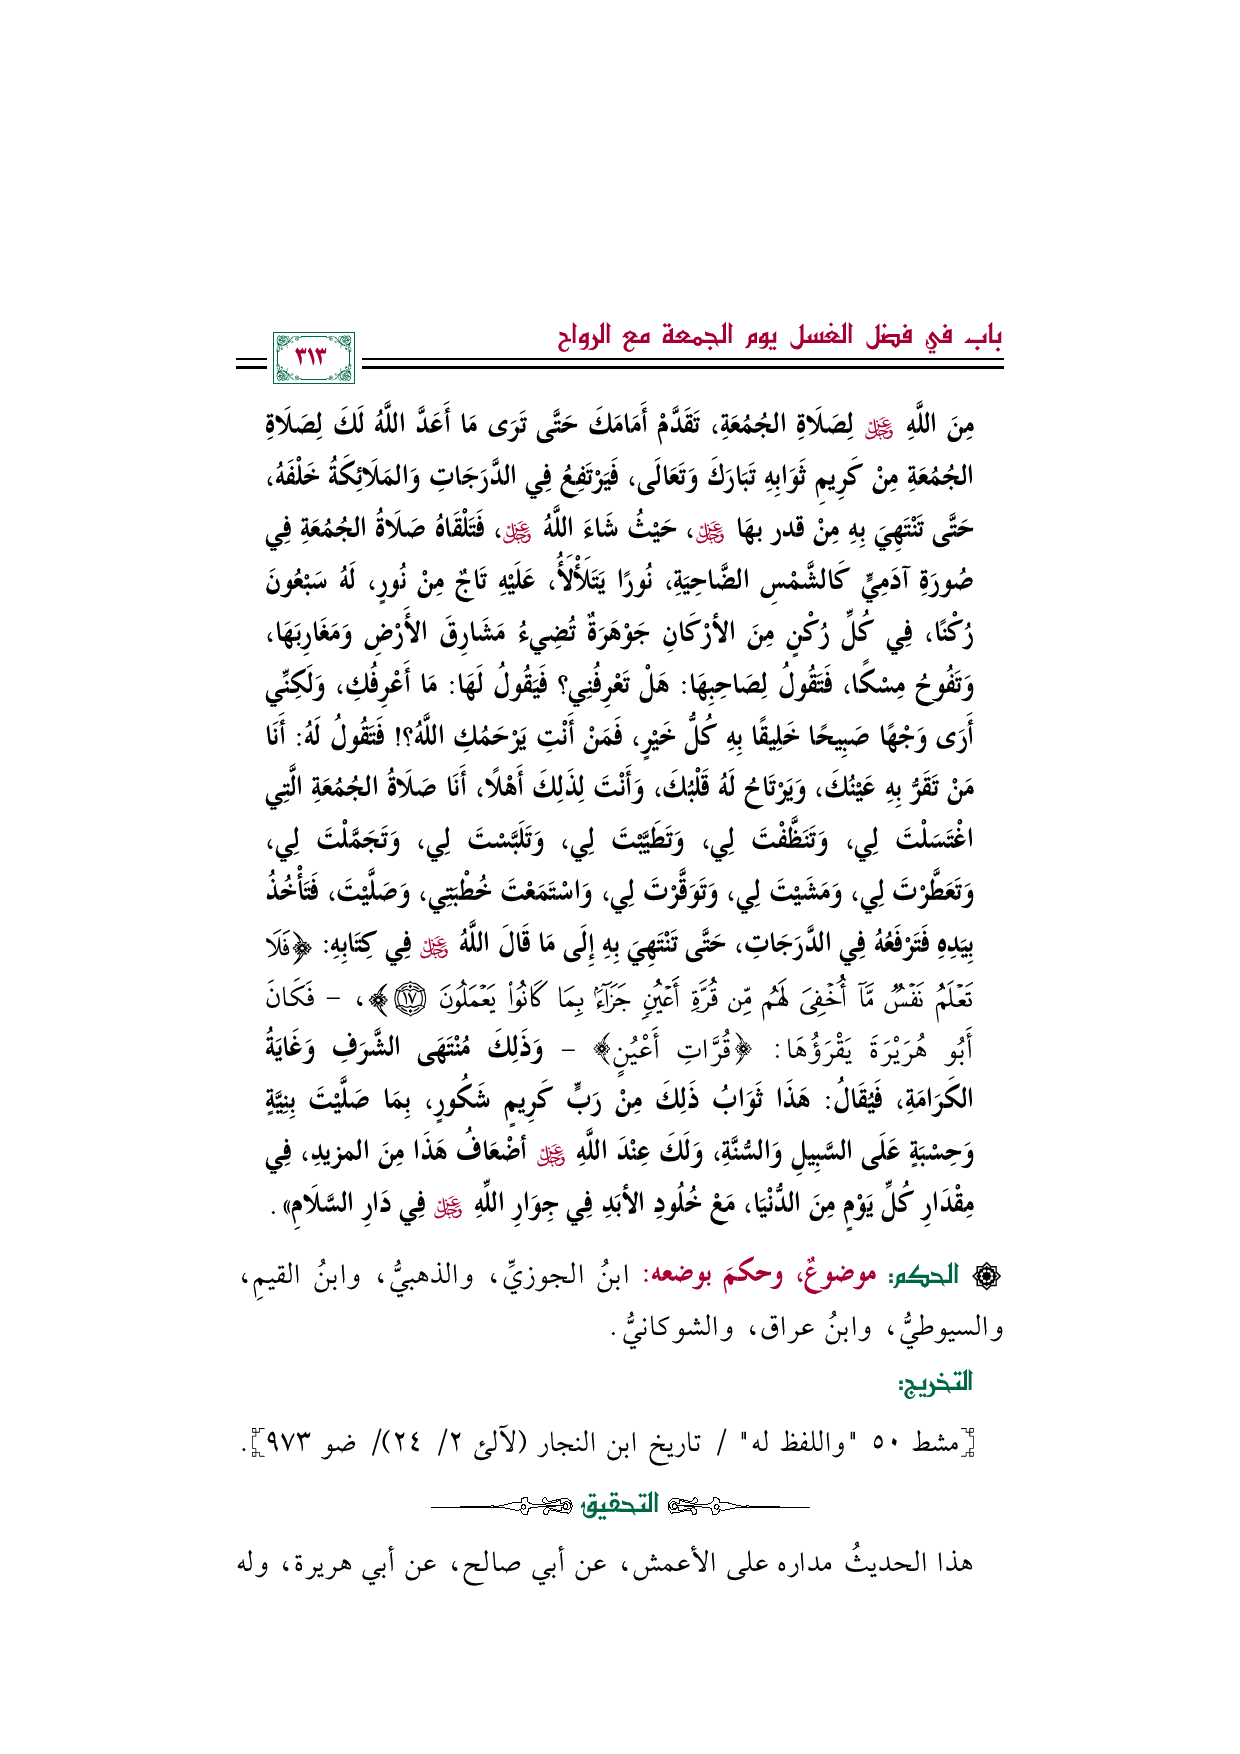 باب في فضل الغسل يوم الجمعة مع الرواح
٣١٣
مِنَ اللَّهِ ﷿ لِصَلَاةِ الجُمُعَةِ، تَقَدَّمْ أَمَامَكَ حَتَّى تَرَى مَا أَعَدَّ اللَّهُ لَكَ لِصَلَاةِ
الجُمُعَةِ مِنْ كَرِيمِ ثَوَابِهِ تَبَارَكَ وَتَعَالَى، فَيَرْتَفِعُ فِي الدَّرَجَاتِ وَالمَلَائِكَةُ خَلْفَهُ،
حَتَّى تَنْتَهِيَ بِهِ مِنْ قدر بهَا ﷿، حَيْثُ شَاءَ اللَّهُ ﷿، فَتَلْقَاهُ صَلَاةُ الجُمُعَةِ فِي
صُورَةِ آدَمِيٍّ كَالشَّمْسِ الضَّاحِيَةِ، نُورًا يَتَلَأْلَأُ، عَلَيْهِ تَاجٌ مِنْ نُورٍ، لَهُ سَبْعُونَ
رُكْنًا، فِي كُلِّ رُكْنٍ مِنَ الأرْكَانِ جَوْهَرَةٌ تُضِيءُ مَشَارِقَ الأَرْضِ وَمَغَارِبَهَا،
وَتَفُوحُ مِسْكًا، فَتَقُولُ لِصَاحِبِهَا: هَلْ تَعْرِفُنِي؟ فَيَقُولُ لَهَا: مَا أَعْرِفُكِ، وَلَكِنِّي
أَرَى وَجْهًا صَبِيحًا خَلِيقًا بِهِ كُلُّ خَيْرٍ، فَمَنْ أَنْتِ يَرْحَمُكِ اللَّهُ؟! فَتَقُولُ لَهُ: أَنَا
مَنْ تَقَرُّ بِهِ عَيْنُكَ، وَيَرْتَاحُ لَهُ قَلْبُكَ، وَأَنْتَ لِذَلِكَ أَهْلًا، أَنَا صَلَاةُ الجُمُعَةِ الَّتِي
اغْتَسَلْتَ لِي، وَتَنَظَّفْتَ لِي، وَتَطَيَّبْتَ لِي، وَتَلَبَّسْتَ لِي، وَتَجَمَّلْتَ لِي،
وَتَعَطَّرْتَ لِي، وَمَشَيْتَ لِي، وَتَوَقَّرْتَ لِي، وَاسْتَمَعْتَ خُطْبَتِي، وَصَلَّيْتَ، فَتَأْخُذُ
بِيَدِهِ فَتَرْفَعُهُ فِي الدَّرَجَاتِ، حَتَّى تَنْتَهِيَ بِهِ إِلَى مَا قَالَ اللَّهُ ﷿ فِي كِتَابِهِ: ﴿فَلَا
تَعْلَمُ نَفْسٌ مَّآ أُخْفِىَ لَهُم مِّن قُرَّةِ أَعْيُنٍ جَزَآءًۢ بِمَا كَانُوا۟ يَعْمَلُونَ ١٧﴾، – فَكَانَ
أَبُو هُرَيْرَةَ يَقْرَؤُهَا: ﴿قُرَّاتِ أَعْيُنٍ﴾ – وَذَلِكَ مُنْتَهَى الشَّرَفِ وَغَايَةُ
الكَرَامَةِ، فَيُقَالُ: هَذَا ثَوَابُ ذَلِكَ مِنْ رَبٍّ كَرِيمٍ شَكُورٍ، بِمَا صَلَّيْتَ بِنِيَّةٍ
وَحِسْبَةٍ عَلَى السَّبِيلِ وَالسُّنَّةِ، وَلَكَ عِنْدَ اللَّهِ ﷿ أضْعَافُ هَذَا مِنَ المزيدِ، فِي
مِقْدَارِ كُلِّ يَوْمٍ مِنَ الدُّنْيَا، مَعْ خُلُودِ الأبَدِ فِي جِوَارِ اللَّهِ ﷿ فِي دَارِ السَّلَامِ».
الحكم: موضوعٌ، وحكمَ بوضعه: ابنُ الجوزيِّ، والذهبيُّ، وابنُ القيمِ،
والسيوطيُّ، وابنُ عراق، والشوكانيُّ.
التخريج:
[مشط ٥٠ "واللفظ له" / تاريخ ابن النجار (لآلئ ٢/ ٢٤)/ ضو ٩٧٣].
التحقيق
هذا الحديثُ مداره على الأعمش، عن أبي صالح، عن أبي هريرة، وله